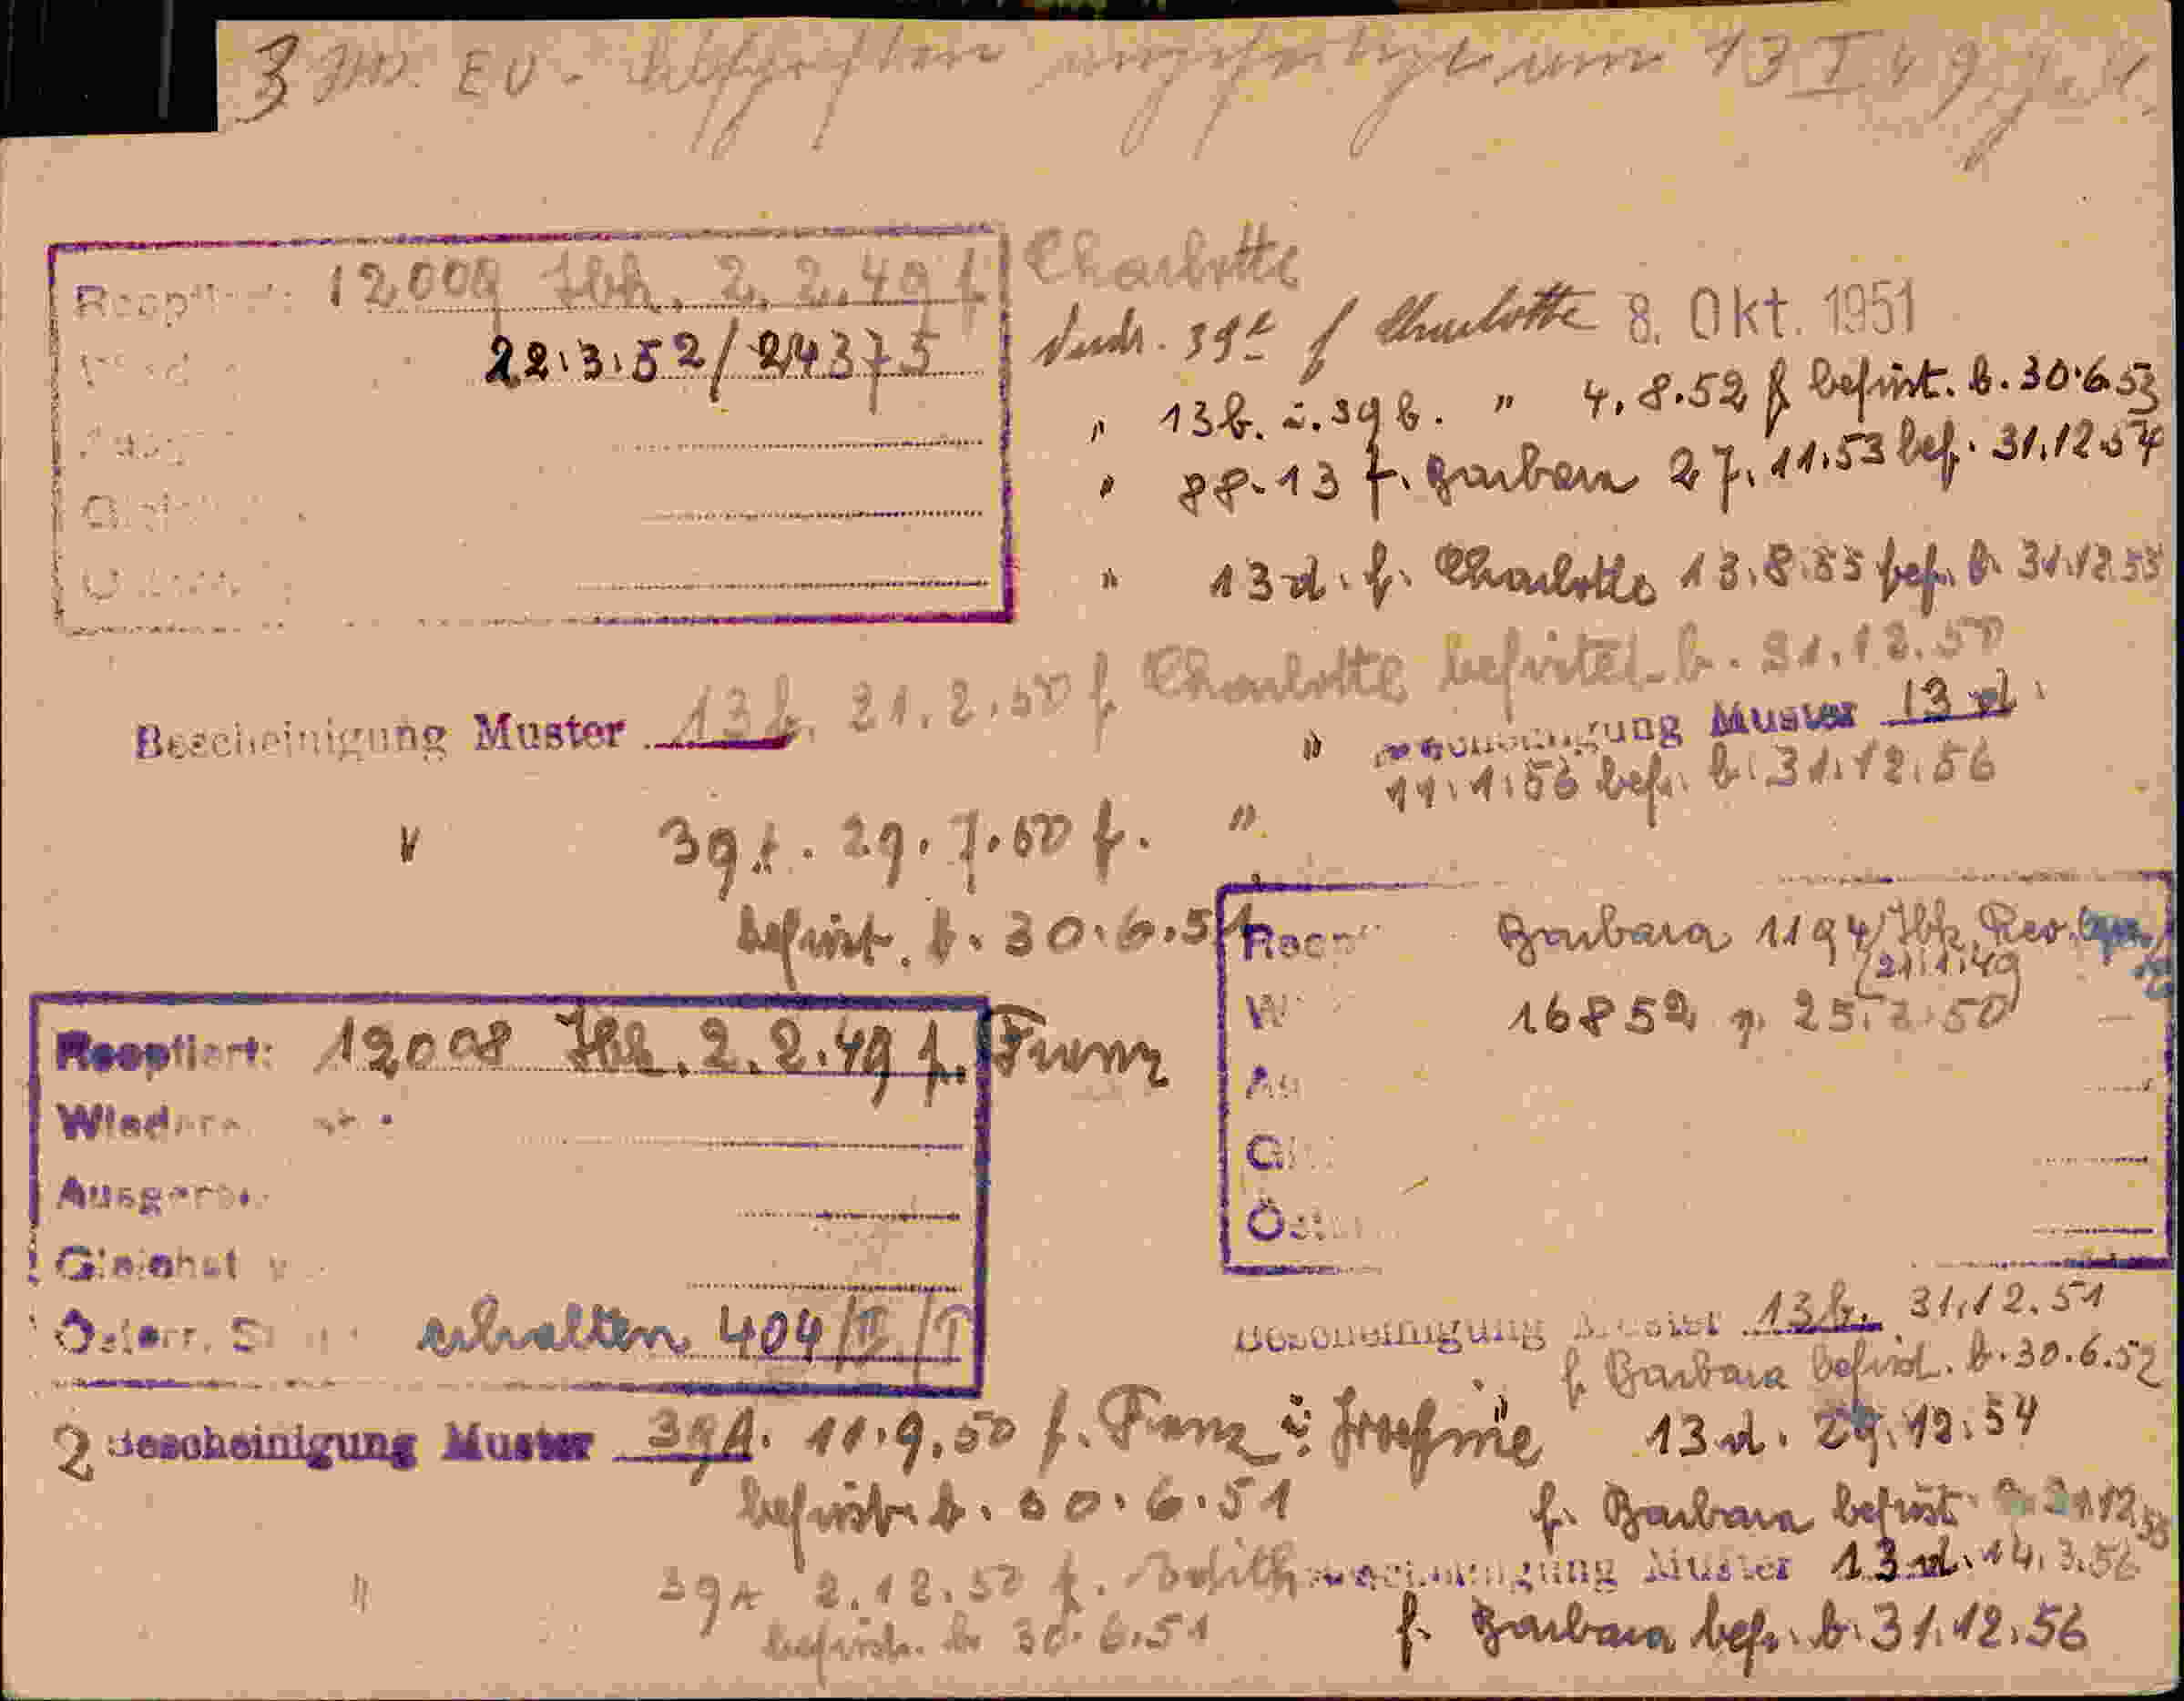 3 EV- 13 I 49
12008 Ibk. 2.2.49 f Charlotte
22.3.52/24375
39a f Charlotte 8. Okt. 1951
" 13b. u. 39b. " 4.8.52 f befrist. b. 30.6.53
" 88-13 f. Barbara 27.11.53 bef. 31.12.54
" 13d. f. Charlotte 13.8.55 bef. b. 31.12.55
Bescheinigung Muster 13b. 21.2.50 f Charlotte befristet b. 31.12.50
" Bescheinigung Muster 13d.
11.1.56 bef. b. 31.12.56
" 39a. 29.7.50 f. "
befrist. b. 30.6.51
Reoptiert: 12008 Ibk. 2.2.49 f. Franz
Wieder
Ausgeb
Gleichst
Österr. S erhalten 404/II/I
Reopt Barbara 1194/Ibk. Rev.
21.1.49
16852 25.2.50
Bescheinigung Muster 13b. 31.12.51
f. Barbara befrist. b. 30.6.52
2 Bescheinigung Muster 39A. 11.9.50 f. Franz u. Josefine
befrist. b. 30.6.51
13d. 29.12.54
f. Barbara befrist b. 31.12.55
" 39A 2.12.50 f. Edith
befrist. b. 30.6.51
Bescheinigung Muster 13d. 14.3.56
f. Barbara bef. b. 31.12.56